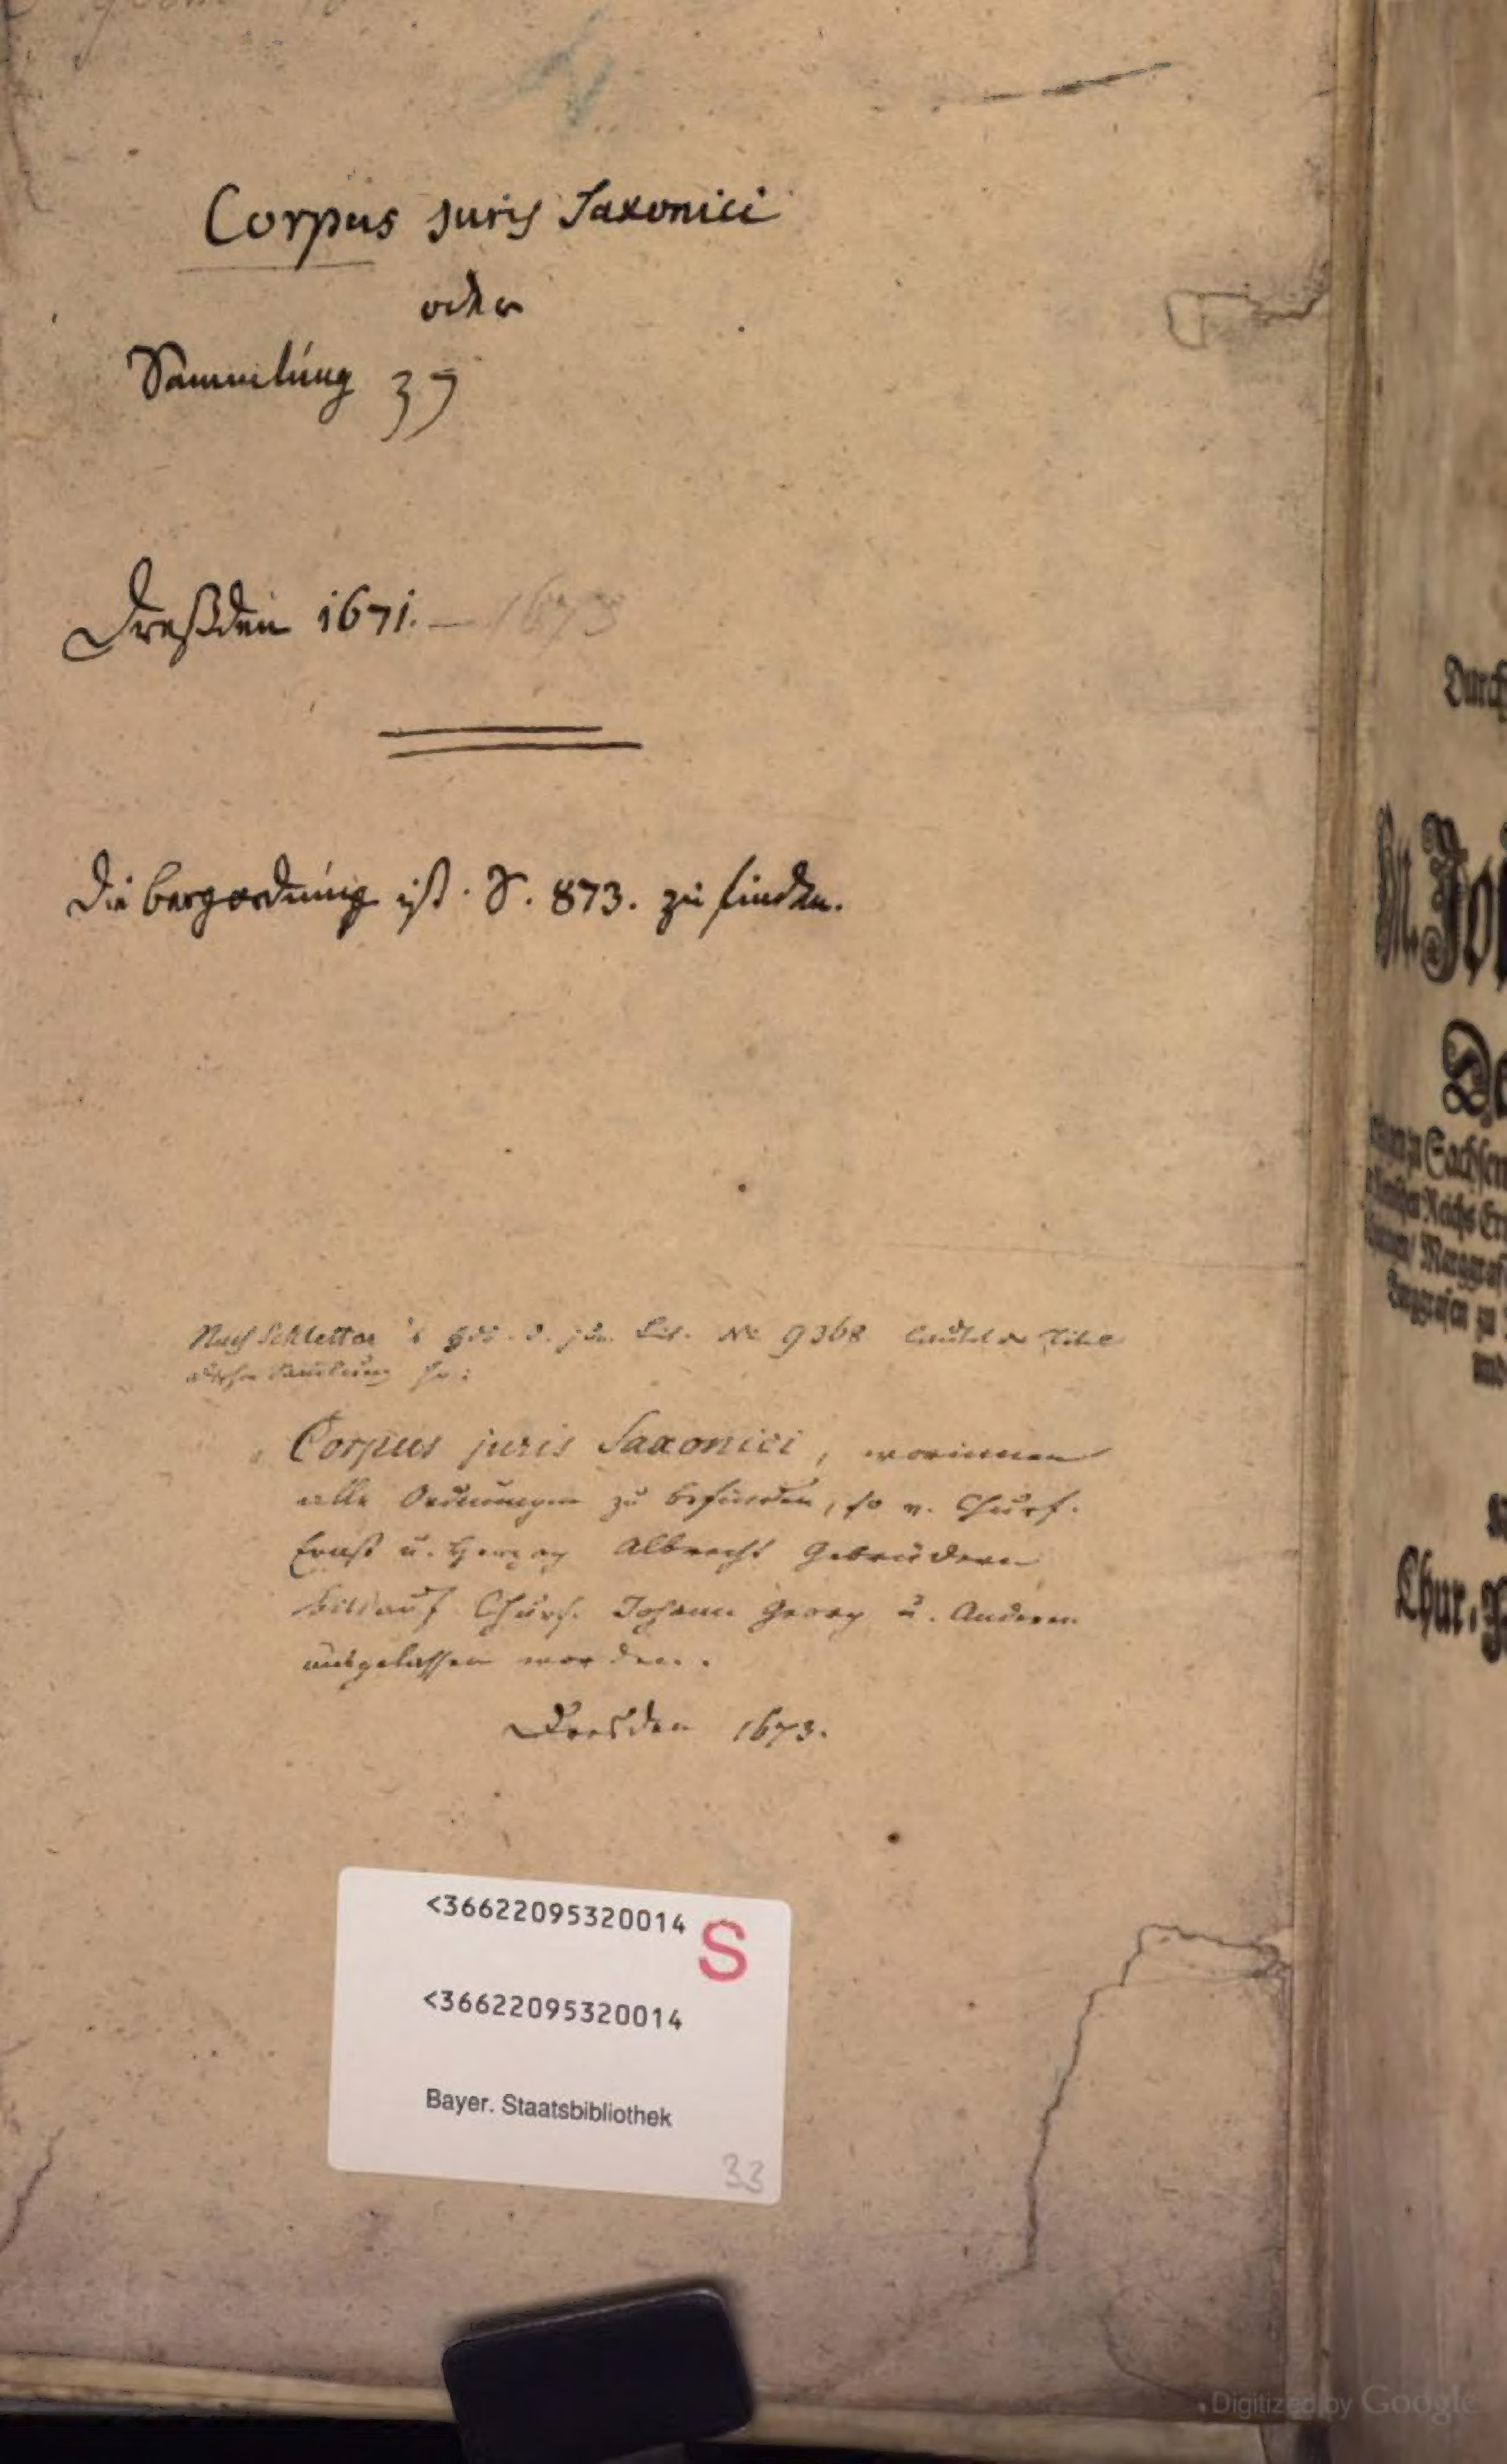 Corpus juris Saxonici
oder
Sammlung
Dreßden 1671. — 1673
Die bergordnung ist S. 873. zu finden.
Nach Schletter's Hdb. d. jur. Lit. No 9368 lautet der Titel
dieser Samlung so:
„Corpus juris Saxonici, worinnen
alle Ordnungen zu befinden, so v. Churf.
Ernst u. Herzog Albrecht Gebrüdern
biß auf Churf. Johann Georg u. Anderen
ausgelassen worden.
Dresden 1673.
<36622095320014
S
<36622095320014
Bayer. Staatsbibliothek
33
Durch
Joh
De
zu Sachsen
Reichs Ertz
Marggraf
Burggrafen zu
und
Chur. 
Digitized by Google